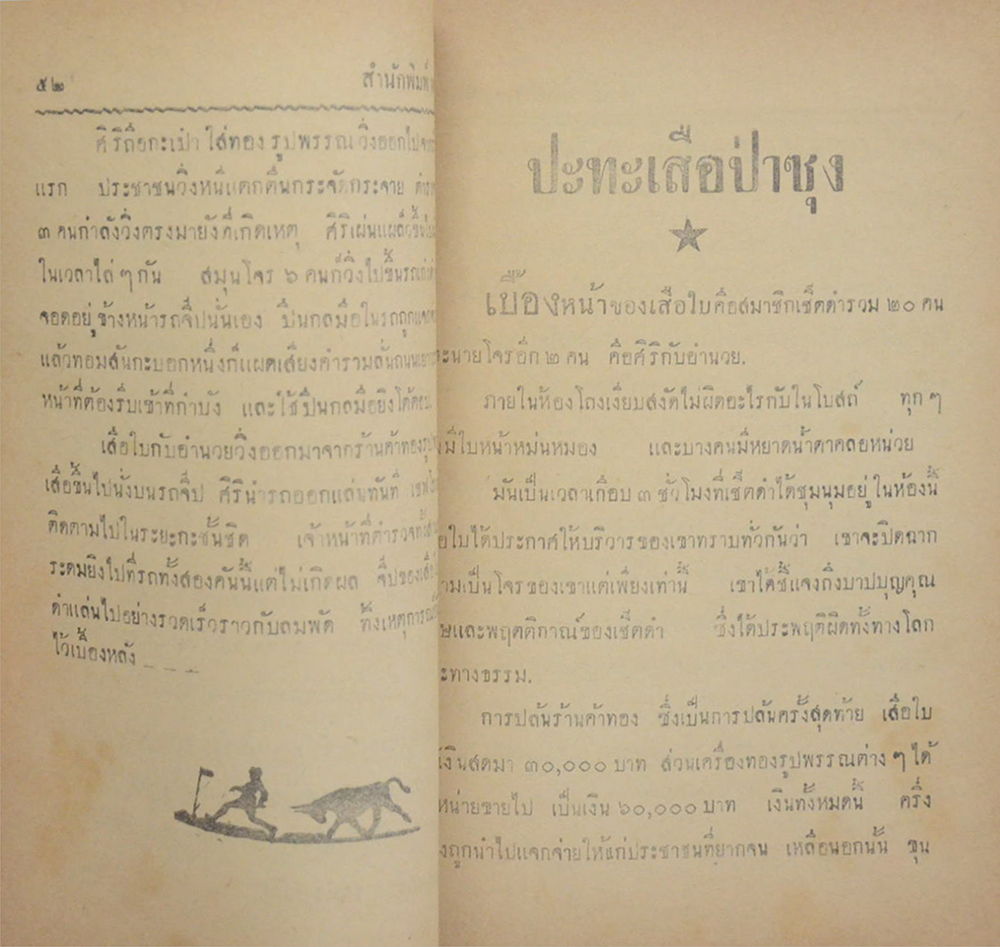 ๕๒ สำนักพิมพ์
ศิริถือกะเป๋า ใส่ทอง รูปพรรณ วิ่งออกไป
แรก ประชาชนวิ่งหนีแตกตื่นกระจัดกระจาย
๓ คนกำลังวิ่งตรงมายังที่เกิดเหตุ ศิริเผ่นแผล็วขึ้น
ในเวลาไล่ๆ กัน สมุนโจร ๖ คนก็วิ่งไปขึ้นรถเก๋ง
จอดอยู่ข้างหน้ารถจี๊ปนั่นเอง ปืนกลมือในรถถูก
แล้วทอมสันกะบอกหนึ่งก็แผดเสียงคำรามลั่นถนน
หน้าที่ต้องรีบเข้าที่กำบัง และใช้ปืนกลมือยิงโต้
เสือใบกับอำนวยวิ่งออกมาจากร้านค้าทอง
เสือขึ้นไปนั่งบนรถจี๊ป ศิรินำรถออกแล่นทันที
ติดตามไปในระยะกะชั้นชิด เจ้าหน้าที่ตำรวจ
ระดมยิงไปที่รถทั้งสองคันนี้แต่ไม่เกิดผล จี๊ปของ
ดำแล่นไปอย่างรวดเร็วราวกับลมพัด ทิ้งเหตุการณ์
ไว้เบื้องหลัง _ _ _
ปะทะเสือป่าซุง
เบื้องหน้าของเสือใบคือสมาชิกเช็ตดำรวม ๒๐ คน
ะนายโจรอีก ๒ คน คือศิริกับอำนวย.
ภายในห้องโถงเงียบสงัดไม่ผิดอะไรกับในโบสถ์ ทุกๆ
มีใบหน้าหม่นหมอง และบางคนมีหยาดน้ำตาคลอหน่วย
มันเป็นเวลาเกือบ ๓ ชั่วโมงที่เช็ตดำได้ชุมนุมอยู่ ในห้องนี้
อใบได้ประกาศให้บริวารของเขาทราบทั่วกันว่า เขาจะปิดฉาก
ามเป็นโจรของเขาแต่เพียงเท่านี้ เขาได้ชี้แจงถึงบาปบุญคุณ
ษและพฤตติการณ์ของเช็ตดำ ซึ่งได้ประพฤติผิดทั้งทางโลก
ะทางธรรม.
การปล้นร้านค้าทอง ซึ่งเป็นการปล้นครั้งสุดท้าย เสือใบ
เงินสดมา ๓๐,๐๐๐ บาท ส่วนเครื่องทองรูปพรรณต่าง ๆ ได้
หน่ายขายไป เป็นเงิน ๖๐,๐๐๐ บาท เงินทั้งหมดนี้ ครึ่ง
งถูกนำไปแจกจ่ายให้แก่ประชาชนที่ยากจน เหลือนอกนั้น ขุน